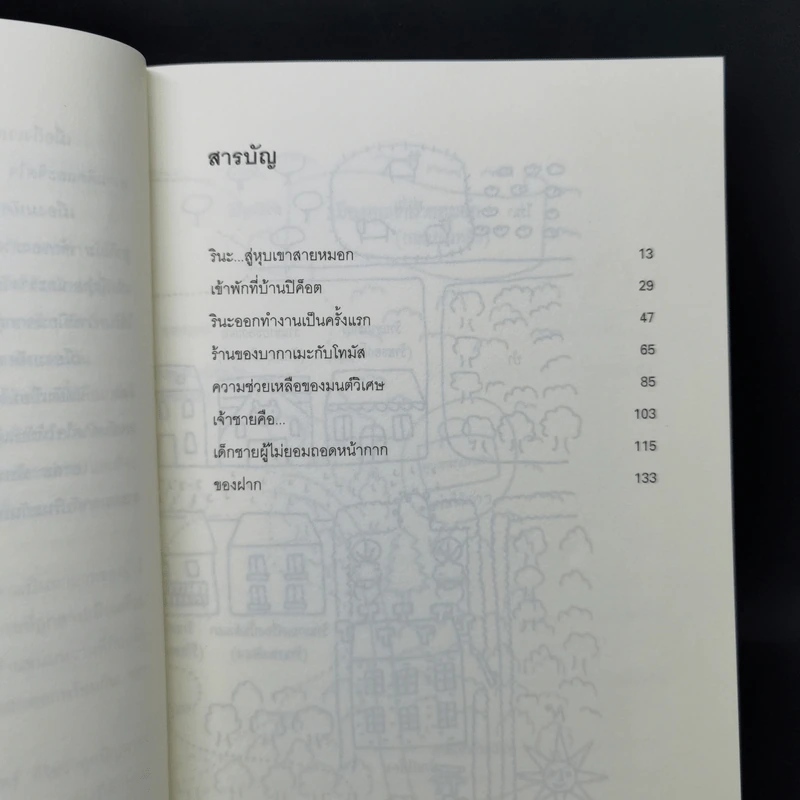 สารบัญ
รินะ...สู่หุบเขาสายหมอก 13
เข้าพักที่บ้านปิค็อต 29
รินะออกทำงานเป็นครั้งแรก 47
ร้านของบากาเมะกับโทมัส 65
ความช่วยเหลือของมนต์วิเศษ 85
เจ้าชายคือ... 103
เด็กชายผู้ไม่ยอมถอดหน้ากาก 115
ของฝาก 133